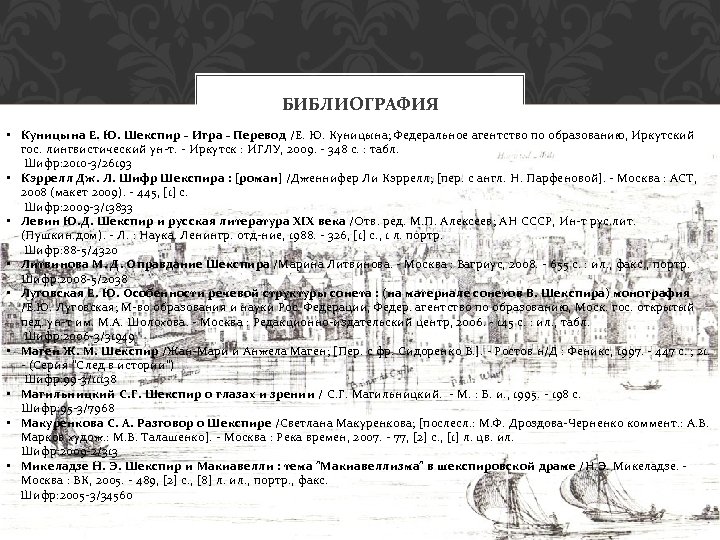 БИБЛИОГРАФИЯ
• Куницына Е. Ю. Шекспир - Игра - Перевод /Е. Ю. Куницына; Федеральное агентство по образованию, Иркутский
гос. лингвистический ун-т. - Иркутск : ИГЛУ, 2009. - 348 с. : табл.
Шифр:2010-3/26193
• Кэррелл Дж. Л. Шифр Шекспира : [роман] /Дженнифер Ли Кэррелл; [пер. с англ. Н. Парфеновой]. - Москва : АСТ,
2008 (макет 2009). - 445, [1] с.
Шифр:2009-3/13833
• Левин Ю.Д. Шекспир и русская литература XIX века /Отв. ред. М.П. Алексеев; АН СССР, Ин-т рус.лит.
(Пушкин.дом). - Л. : Наука. Ленингр. отд-ние, 1988. - 326, [1] с., 1 л. портр.
Шифр:88-5/4320
• Литвинова М. Д. Оправдание Шекспира /Марина Литвинова. - Москва : Вагриус, 2008. - 655 с. : ил., факс., портр.
Шифр:2008-5/2038
• Луговская Е. Ю. Особенности речевой структуры сонета : (на материале сонетов В. Шекспира) монография
/Е.Ю. Луговская; М-во образования и науки Рос. Федерации, Федер. агентство по образованию, Моск. гос. открытый
пед. ун-т им. М.А. Шолохова. - Москва : Редакционно-издательский центр, 2006. - 145 с. : ил., табл.
Шифр:2006-3/31949
• Маген Ж. М. Шекспир /Жан-Мари и Анжела Маген; [Пер. с фр. Сидоренко В.]. - Ростов н/Д : Феникс, 1997. - 447 с. ; 21.
- (Серия "След в истории")
Шифр:99-3/11138
• Магильницкий С.Г. Шекспир о глазах и зрении / С.Г. Магильницкий. - М. : Б. и., 1995. - 198 с.
Шифр:95-3/7968
• Макуренкова С. А. Разговор о Шекспире /Светлана Макуренкова; [послесл.: М.Ф. Дроздова-Черненко коммент.: А.В.
Марков худож.: М.В. Талашенко]. - Москва : Река времен, 2007. - 77, [2] с., [1] л. цв. ил.
Шифр:2009-2/313
• Микеладзе Н. Э. Шекспир и Макиавелли : тема "Макиавеллизма" в шекспировской драме /Н.Э. Микеладзе. -
Москва : ВК, 2005. - 489, [2] с., [8] л. ил., портр., факс.
Шифр:2005-3/34560